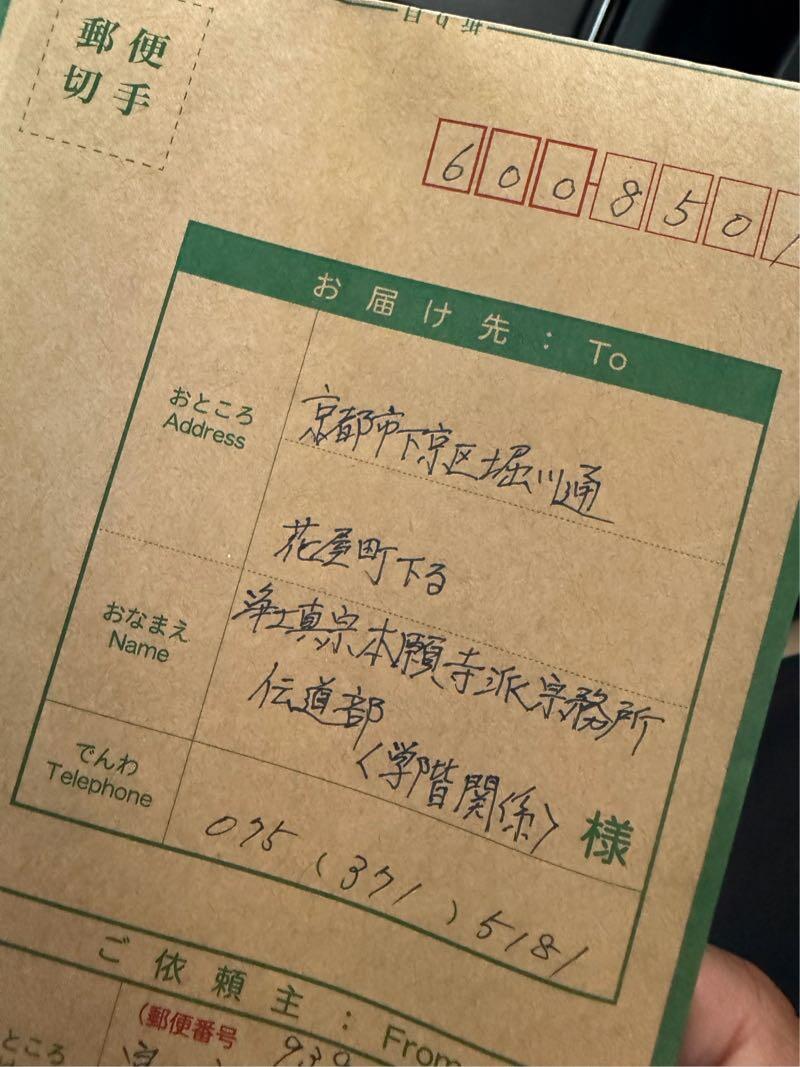 郵便
切手
6008501
お届け先：To
おところ
Address
京都市下京区堀川通
花屋町下る
おなまえ
Name
浄土真宗本願寺派宗務所
伝道部
〈学階関係〉 様
でんわ
Telephone
075 (371) 5181
ご依頼主：From
(郵便番号
ところ
930